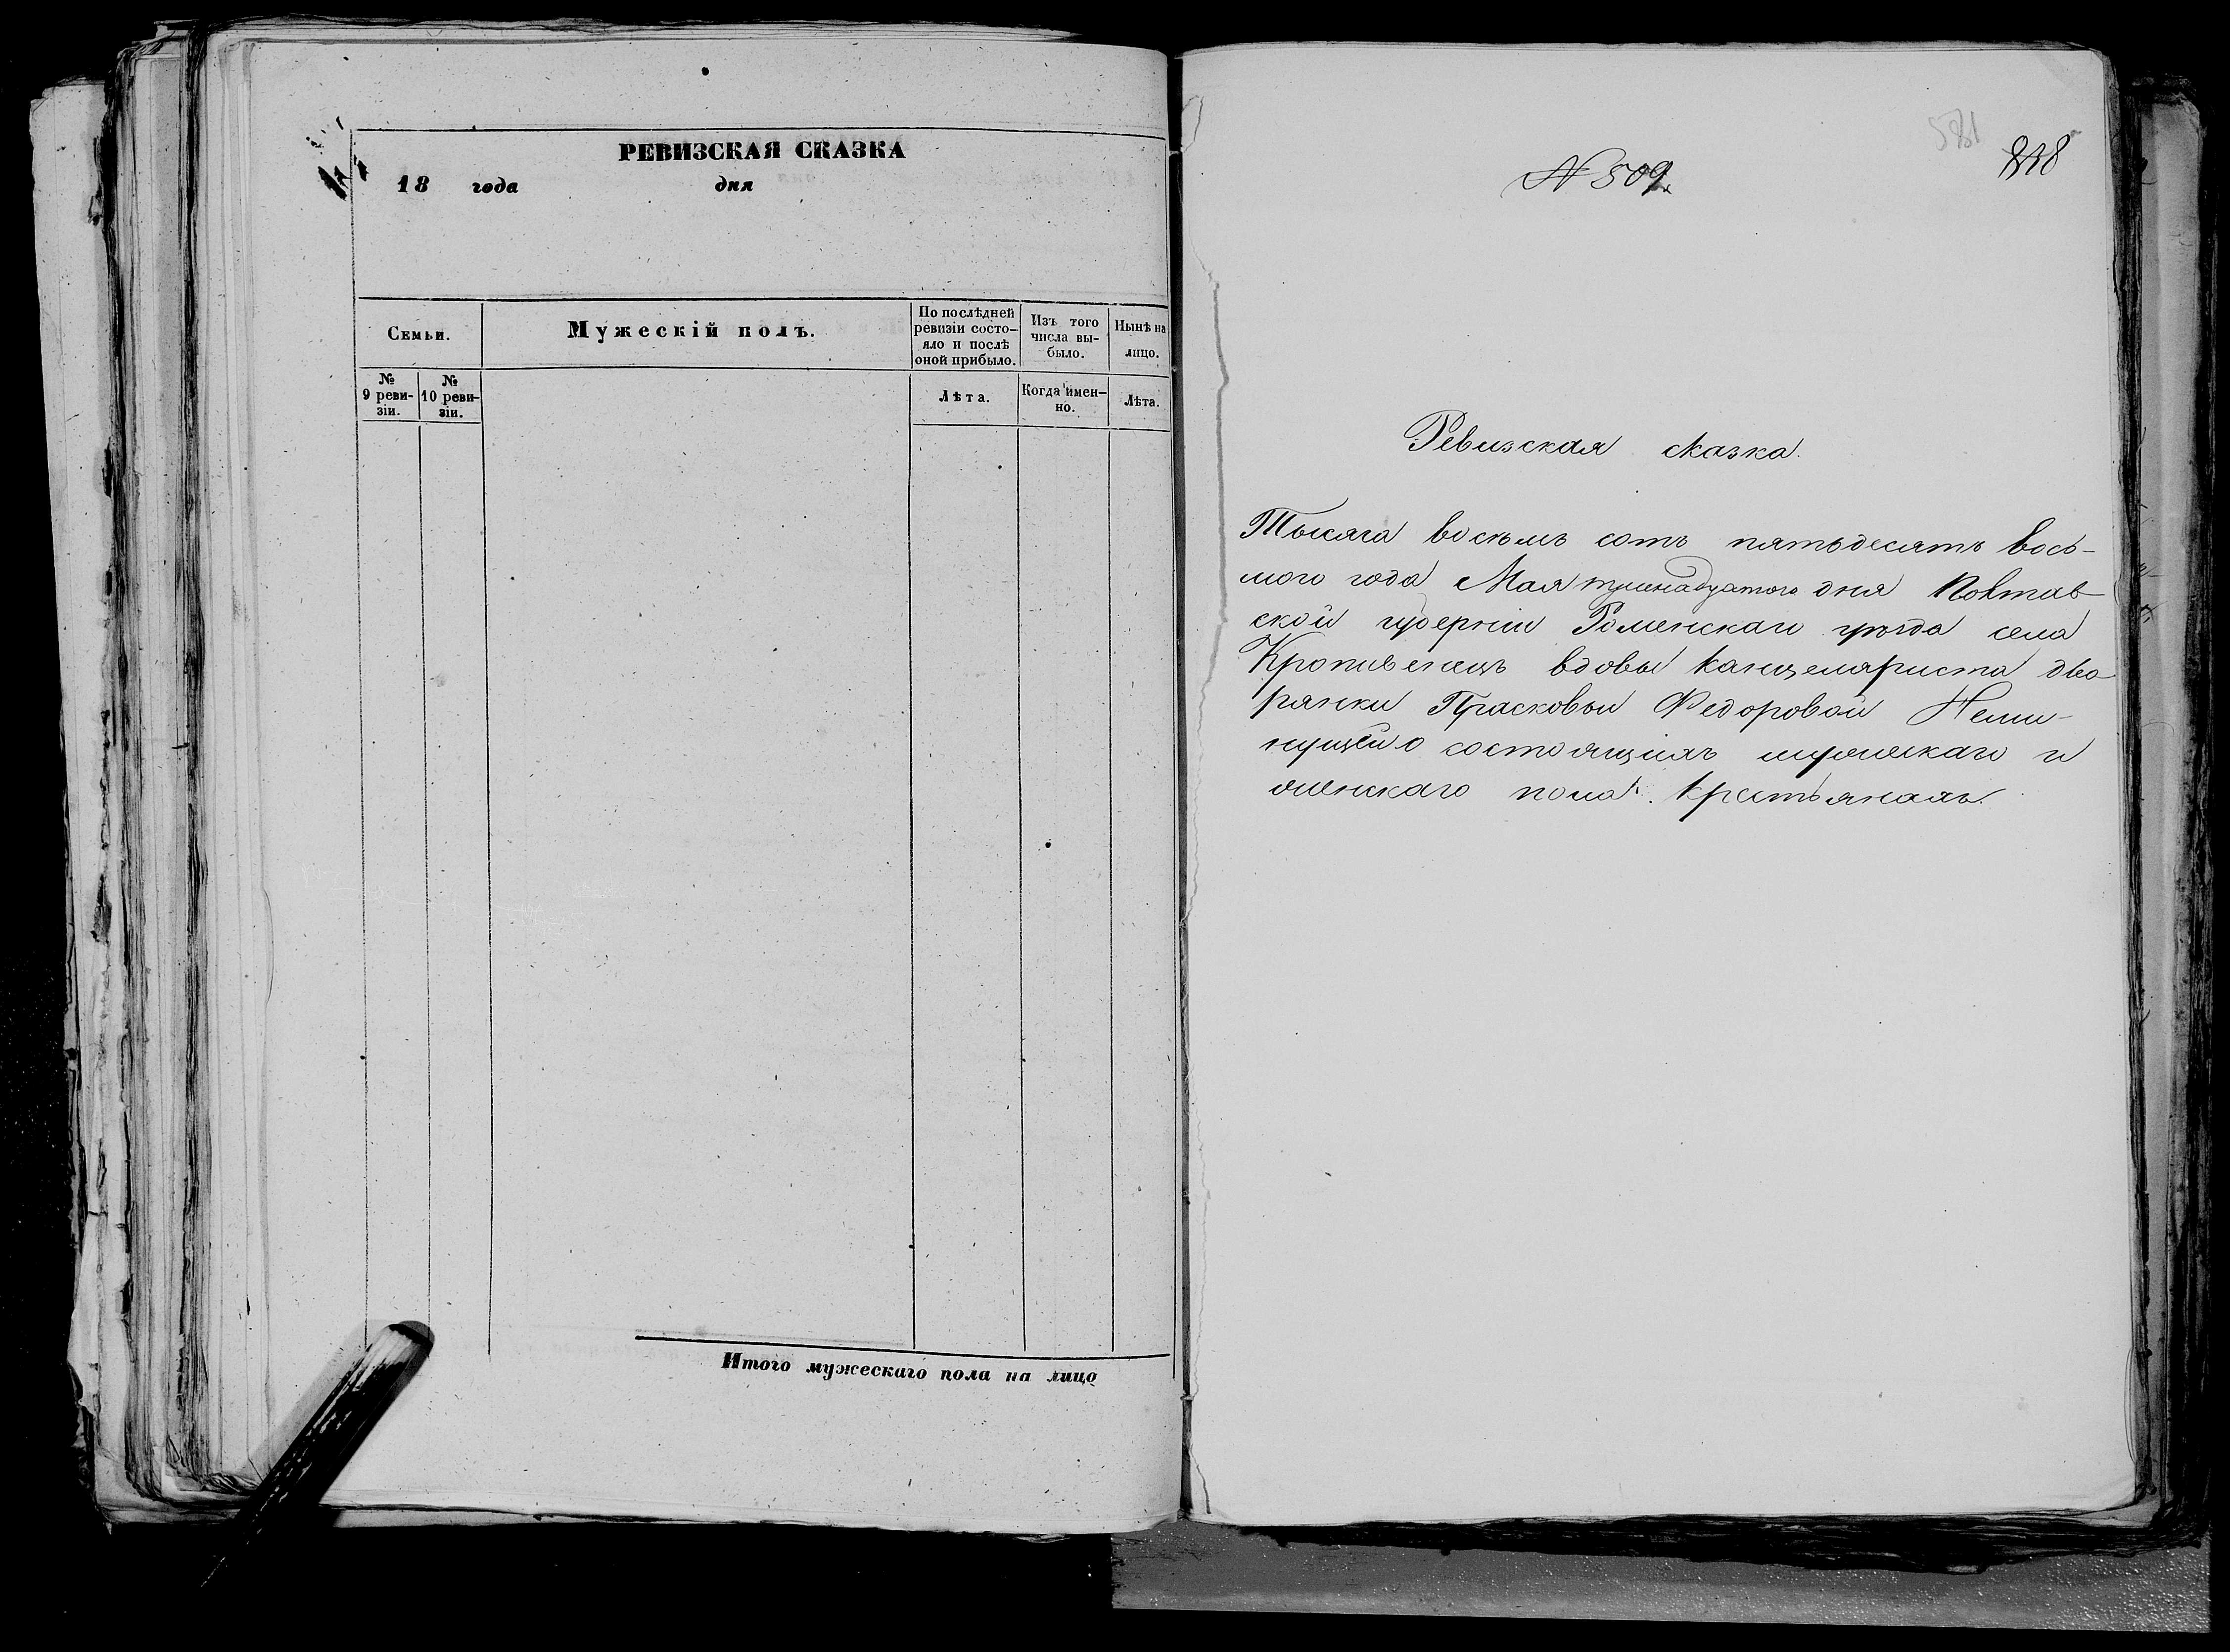 РЕВИЗСКАЯ СКАЗКА
18 года дня
Семьи.
Мужескій полъ.
По послѣдней
ревизіи состо-
яло и послѣ
оной прибыло.
Изъ того
числа вы-
было.
Нынѣ на
лицо.
№
9 реви-
зіи.
№
10 реви-
зіи.
Лѣта.
Когда имен-
но.
Лѣта.
Итого мужескаго пола на лицо
581
N 509
Ревизская сказка.
Тысяча восемь сотъ пятьдесятъ вось-
мого года Мая тринадцатого дня Полтав-
ской губерніи Роменскаго уѣзда села
Кропивенецъ вдовы канцеляриста дво-
рянки Прасковьи Федоровой Неми-
нущей о состоящихъ мужескаго и
женскаго пола крестьянахъ.